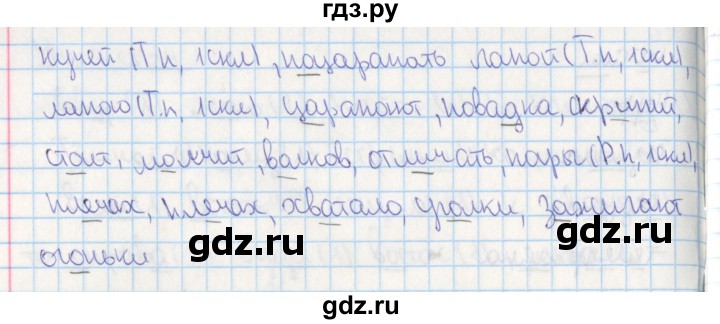 гдз.ру
кучей (Т.п, 1скл), поцарапать лапой (Т.п, 1скл),
лапою (Т.п, 1скл), царапают, повадка, скрипит,
стоит, молчит, волков, отличать, поры (Р.п, 1скл),
плечах, плечах, хватало уголки, зажигают
gdz.ru gdz.ru
огоньки
gdz.ru